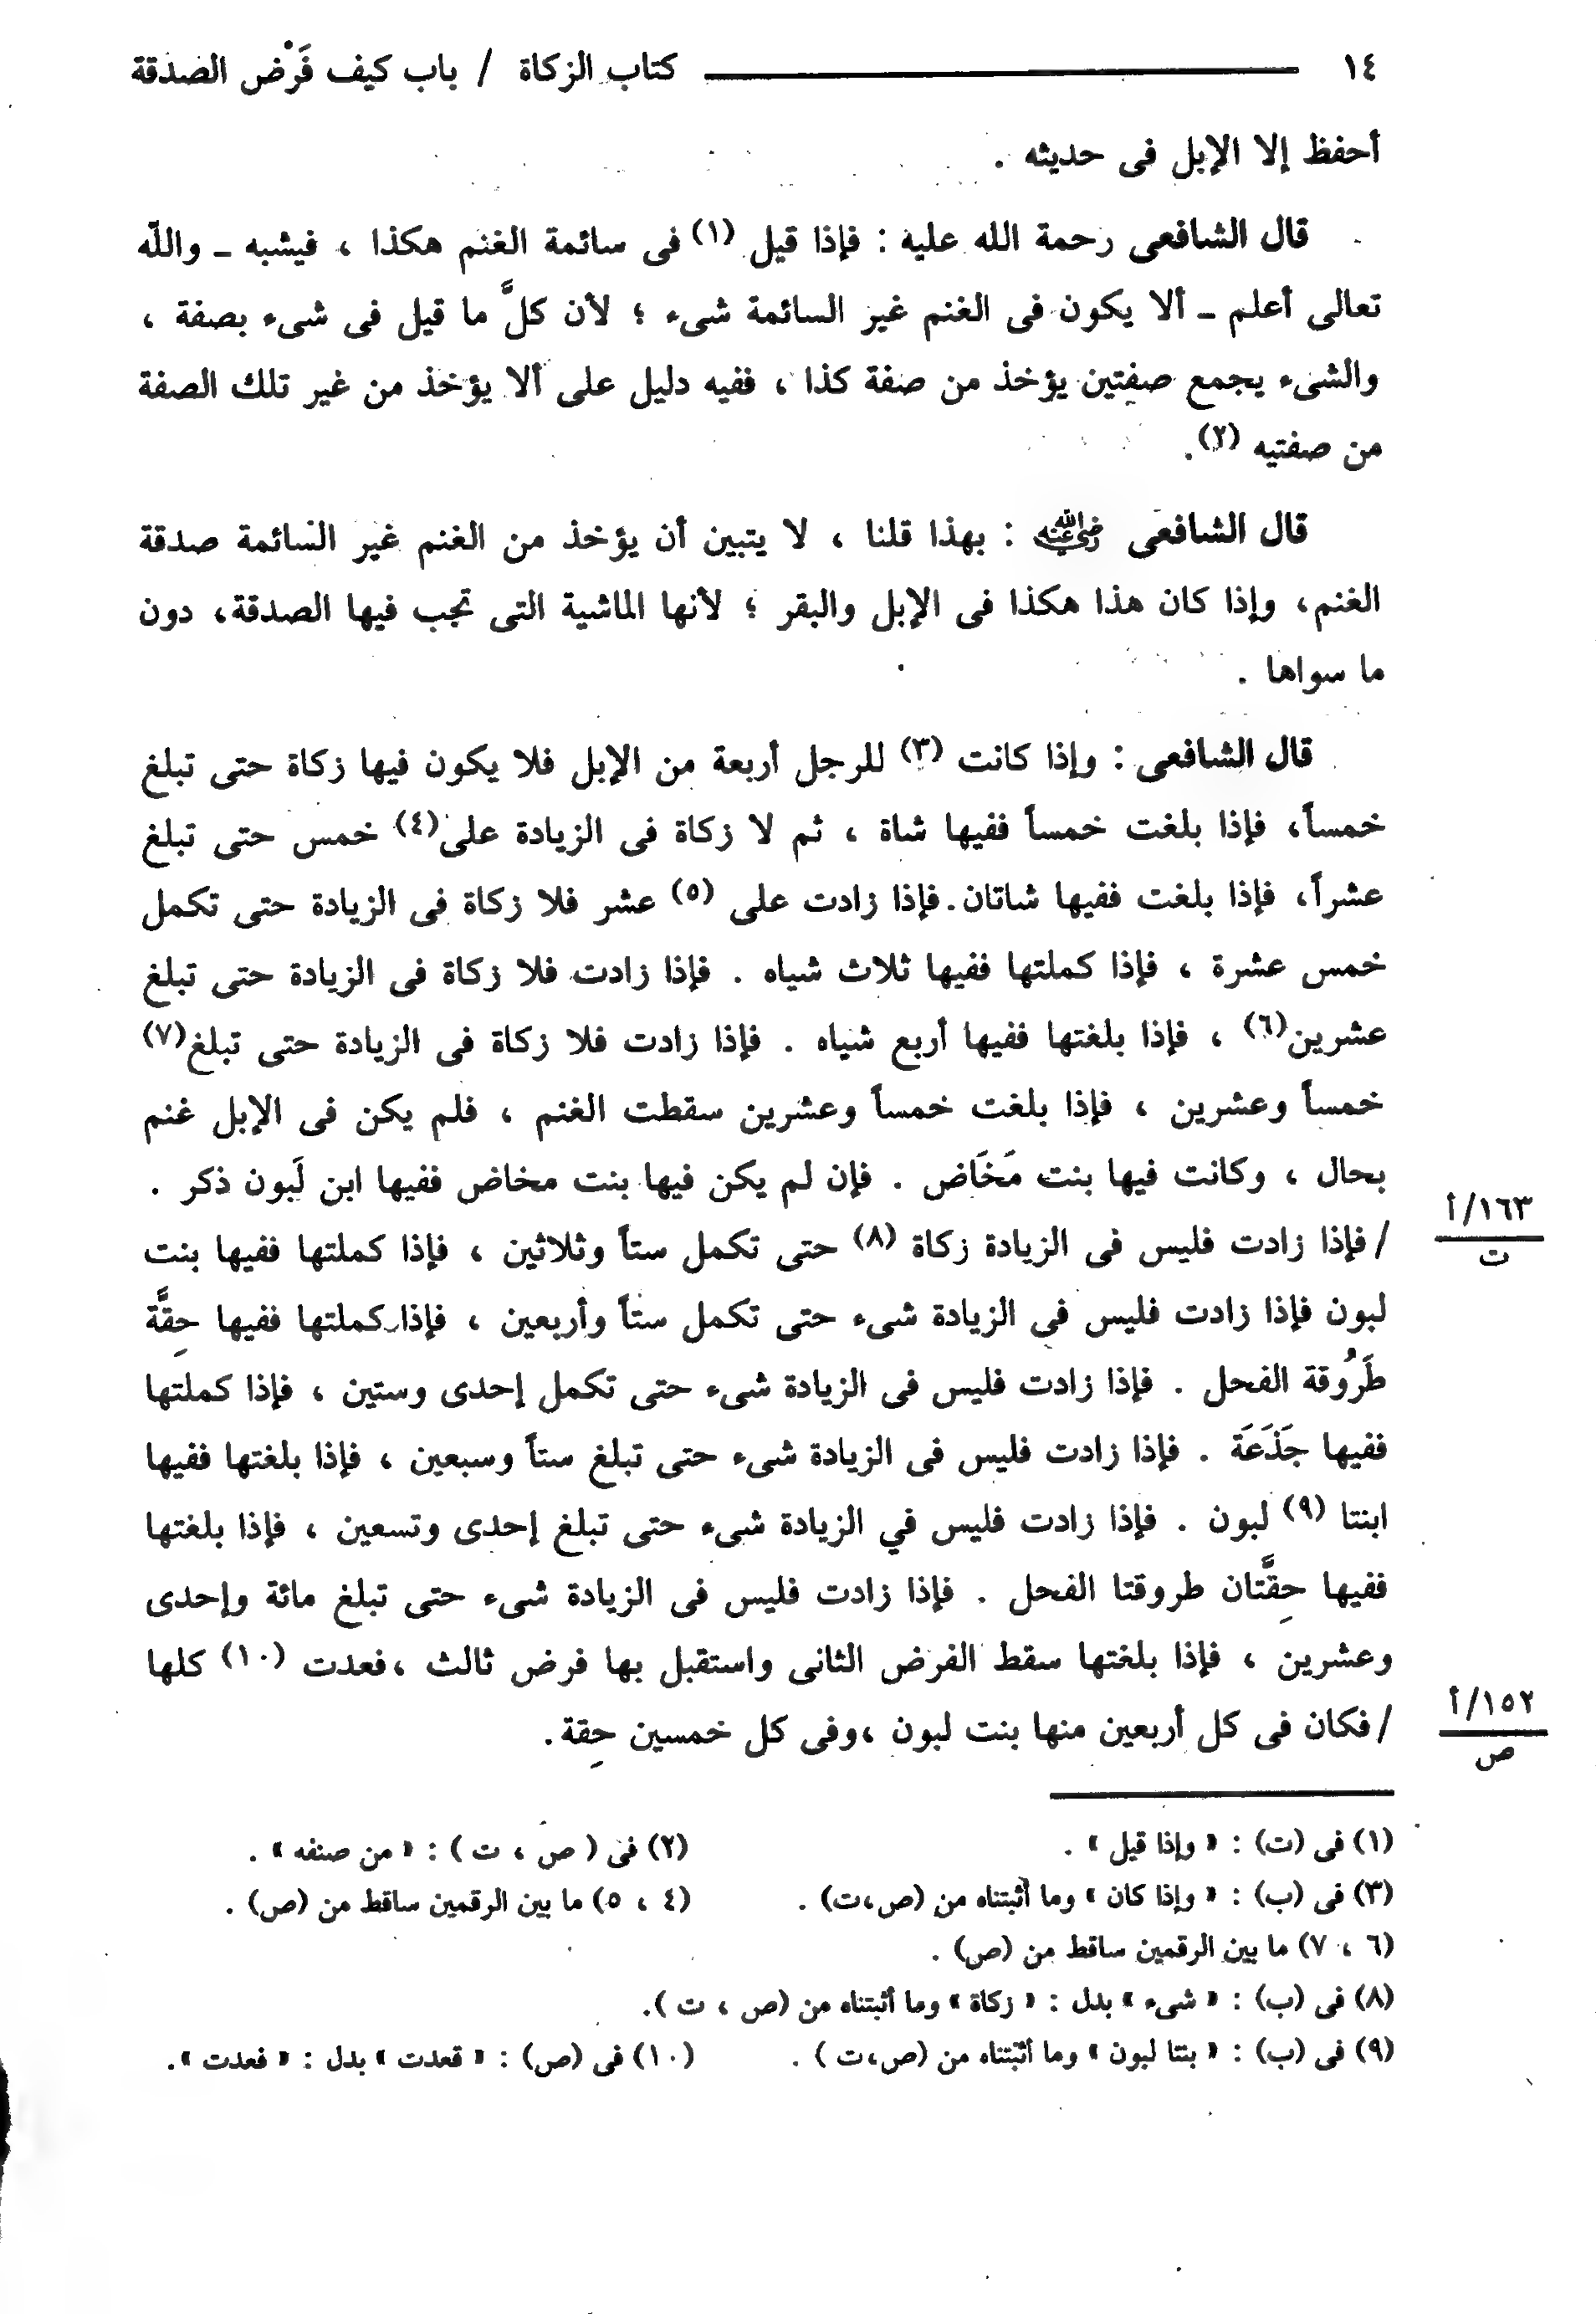 ١٤ كتاب الزكاة / باب كيف فَرْض الصدقة
أحفظ إلا الإبل فى حديثه .
قال الشافعى رحمة الله عليه : فإذا قيل (١) فى سائمة الغنم هكذا ، فيشبه ـ والله
تعالى أعلم ـ ألا يكون فى الغنم غير السائمة شىء ؛ لأن كلَّ ما قيل فى شىء بصفة ،
والشىء يجمع صفتين يؤخذ من صفة كذا ، ففيه دليل على ألا يؤخذ من غير تلك الصفة
من صفتيه (٢).
قال الشافعى رضي الله عنه : بهذا قلنا ، لا يتبين أن يؤخذ من الغنم غير السائمة صدقة
الغنم، وإذا كان هذا هكذا فى الإبل والبقر ؛ لأنها الماشية التى تجب فيها الصدقة، دون
ما سواها .
قال الشافعى : وإذا كانت (٣) للرجل أربعة من الإبل فلا يكون فيها زكاة حتى تبلغ
خمساً، فإذا بلغت خمساً ففيها شاة ، ثم لا زكاة فى الزيادة على(٤) خمس حتى تبلغ
عشراً، فإذا بلغت ففيها شاتان. فإذا زادت على (٥) عشر فلا زكاة فى الزيادة حتى تكمل
خمس عشرة ، فإذا كملتها ففيها ثلاث شياه . فإذا زادت فلا زكاة فى الزيادة حتى تبلغ
عشرين(٦) ، فإذا بلغتها ففيها أربع شياه . فإذا زادت فلا زكاة فى الزيادة حتى تبلغ(٧)
خمساً وعشرين ، فإذا بلغت خمساً وعشرين سقطت الغنم ، فلم يكن فى الإبل غنم
بحال ، وكانت فيها بنت مَخَاض . فإن لم يكن فيها بنت مخاض ففيها ابن لَبون ذكر .
١٦٣/أ
ت
/ فإذا زادت فليس فى الزيادة زكاة (٨) حتى تكمل ستاً وثلاثين ، فإذا كملتها ففيها بنت
لبون فإذا زادت فليس فى الزيادة شىء حتى تكمل ستاً وأربعين ، فإذا كملتها ففيها حِقَّة
طَرُوقة الفحل . فإذا زادت فليس فى الزيادة شىء حتى تكمل إحدى وستين ، فإذا كملتها
ففيها جَذَعَة . فإذا زادت فليس فى الزيادة شىء حتى تبلغ ستاً وسبعين ، فإذا بلغتها ففيها
ابنتا (٩) لبون . فإذا زادت فليس في الزيادة شىء حتى تبلغ إحدى وتسعين ، فإذا بلغتها
ففيها حِقَّتان طروقتا الفحل . فإذا زادت فليس فى الزيادة شىء حتى تبلغ مائة وإحدى
وعشرين ، فإذا بلغتها سقط الفرض الثانى واستقبل بها فرض ثالث ،فعدت (١٠) كلها
١٥٢/أ
ص
/ فكان فى كل أربعين منها بنت لبون ،وفى كل خمسين حِقة.
(١) فى (ت) : « وإذا قيل » .
(٢) فى ( ص ، ت ) : « من صنفه » .
(٣) فى (ب) : « وإذا كان » وما أثبتناه من (ص،ت) .
(٤ ، ٥) ما بين الرقمين ساقط من (ص) .
(٦ ، ٧) ما بين الرقمين ساقط من (ص) .
(٨) فى (ب) : « شىء » بدل : « زكاة » وما أثبتناه من (ص ، ت ).
(٩) فى (ب) : « بنتا لبون » وما أثبتناه من (ص،ت ) .
(١٠) فى (ص) : « قعدت » بدل : « فعدت ».